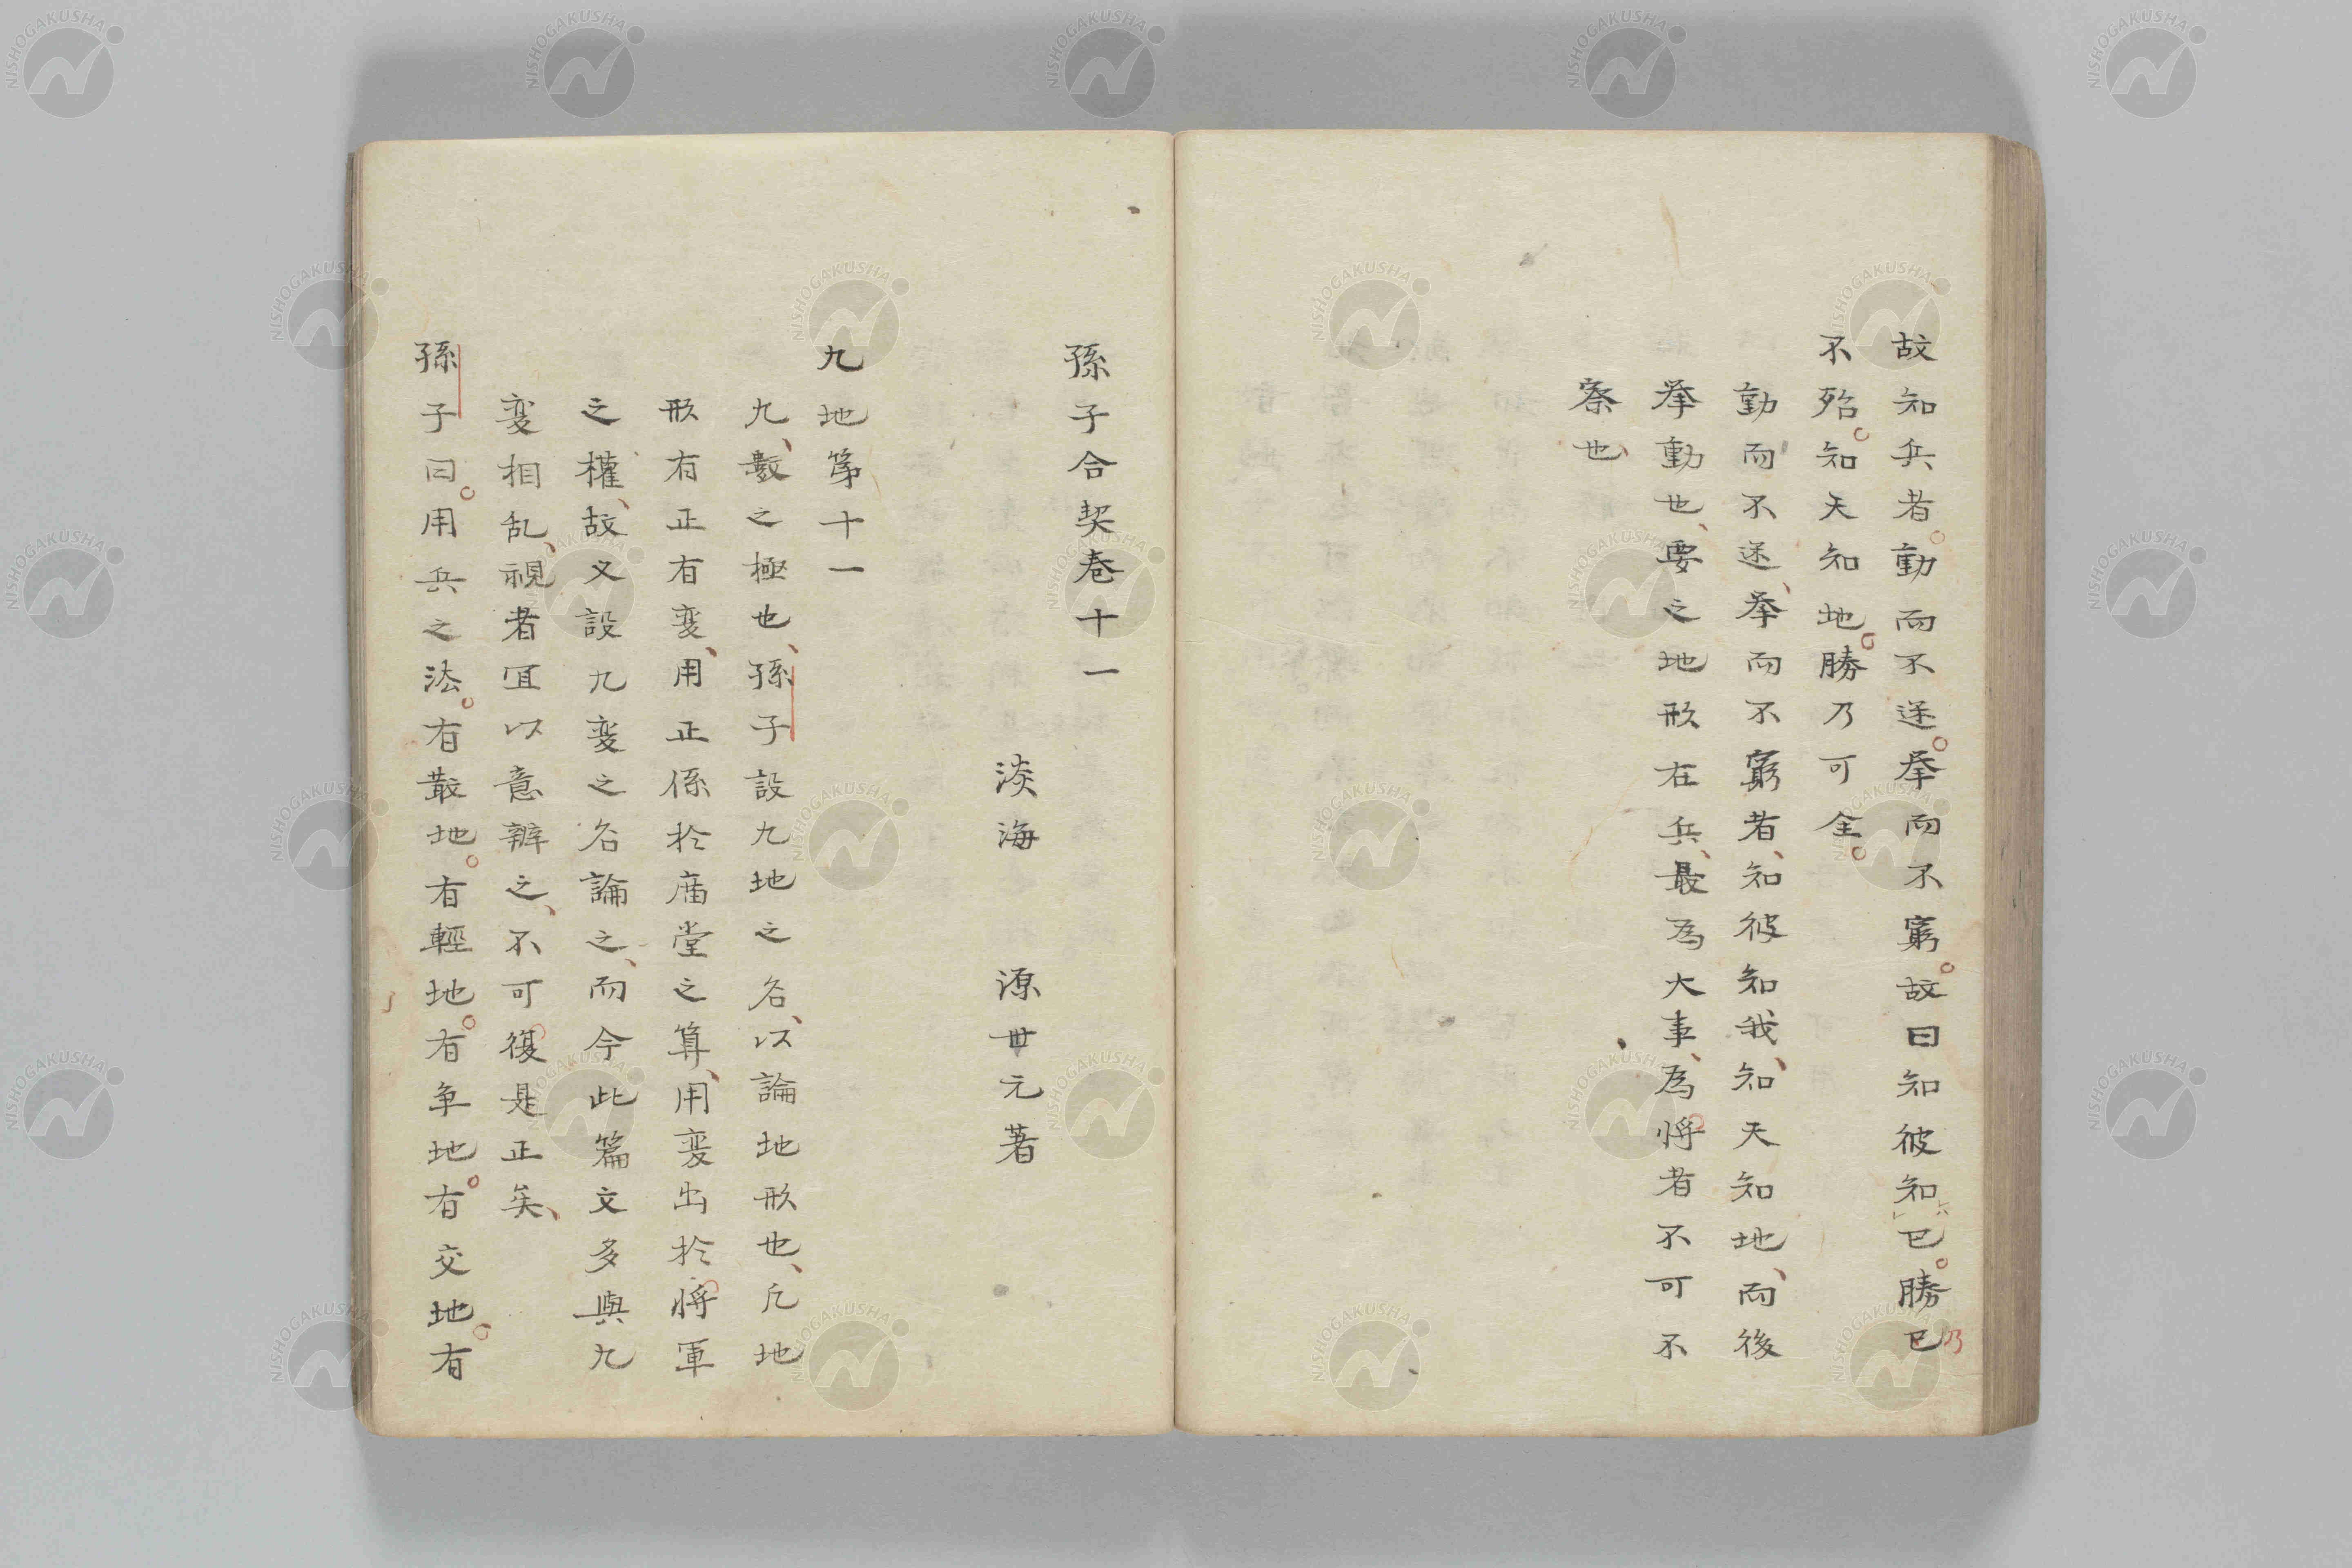 故知兵者。動而不迷。挙而不窮。故曰知彼知已。勝已乃
不殆。知天知地。勝乃可全。
動而不迷、挙而不窮者、知彼知我、知天知地、而後
挙動也、要之地形在兵、最為大事、為将者不可不
察也、
孫子合契巻十一
淡海 源世元著
九地第十一
九、数之極也、孫子設九地之名、以論地形也、凡地
形有正有変、用正係於庙堂之算、用変出於将軍
之權、故又設九変之名論之、而今此篇文多與九
変相乱、視者冝以意辨之、不可復是正矣、
孫子曰。用兵之法。有散地。有輕地。有争地。有交地。有
NISHOGAKUSHA